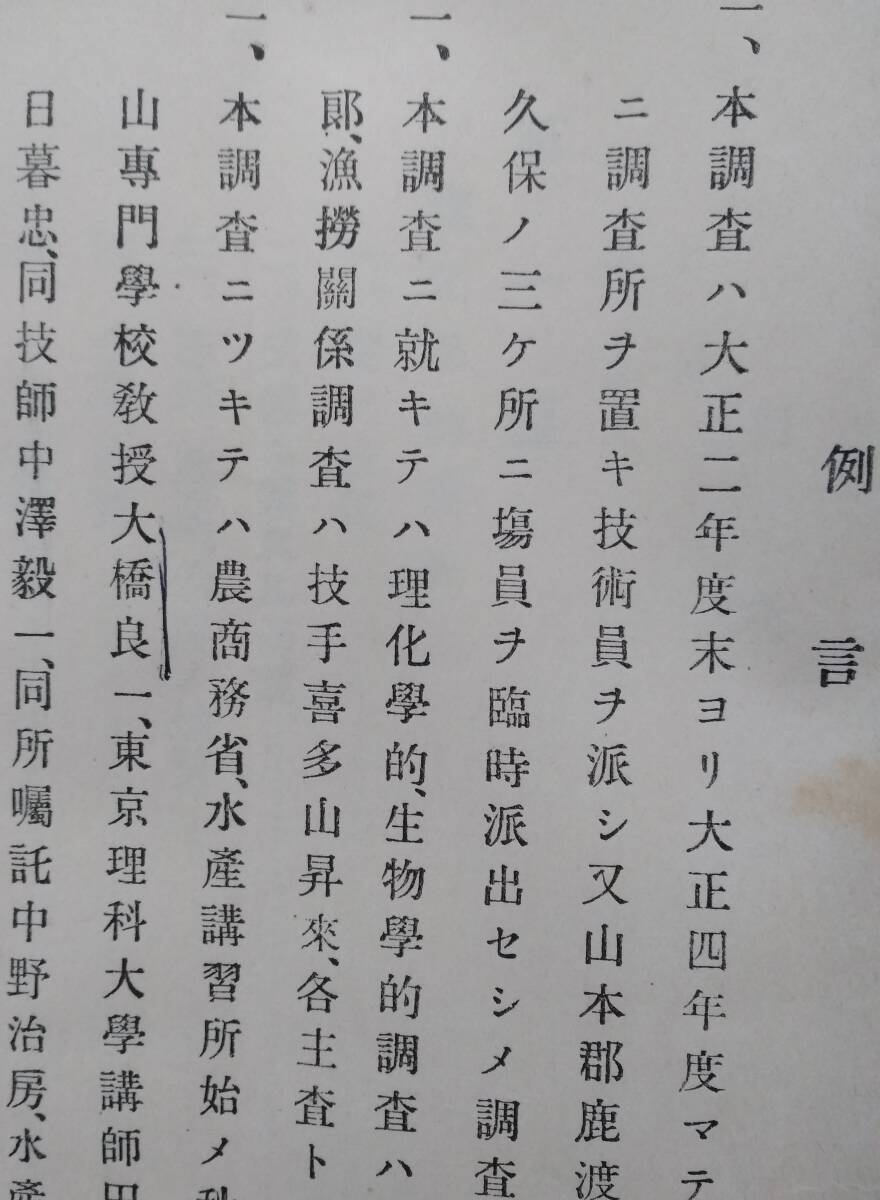 例言
一、本調査ハ大正二年度末ヨリ大正四年度マテ
ニ調査所ヲ置キ技術員ヲ派シ又山本郡鹿渡
久保ノ三ケ所ニ塲員ヲ臨時派出セシメ調査
一、本調査ニ就キテハ理化學的、生物學的調査ハ
郎、漁撈關係調査ハ技手喜多山昇來、各主査ト
一、本調査ニツキテハ農商務省、水產講習所始メ
山專門學校教授大橋良一、東京理科大學講師田
日暮忠、同技師中澤毅一、同所囑託中野治房、水產